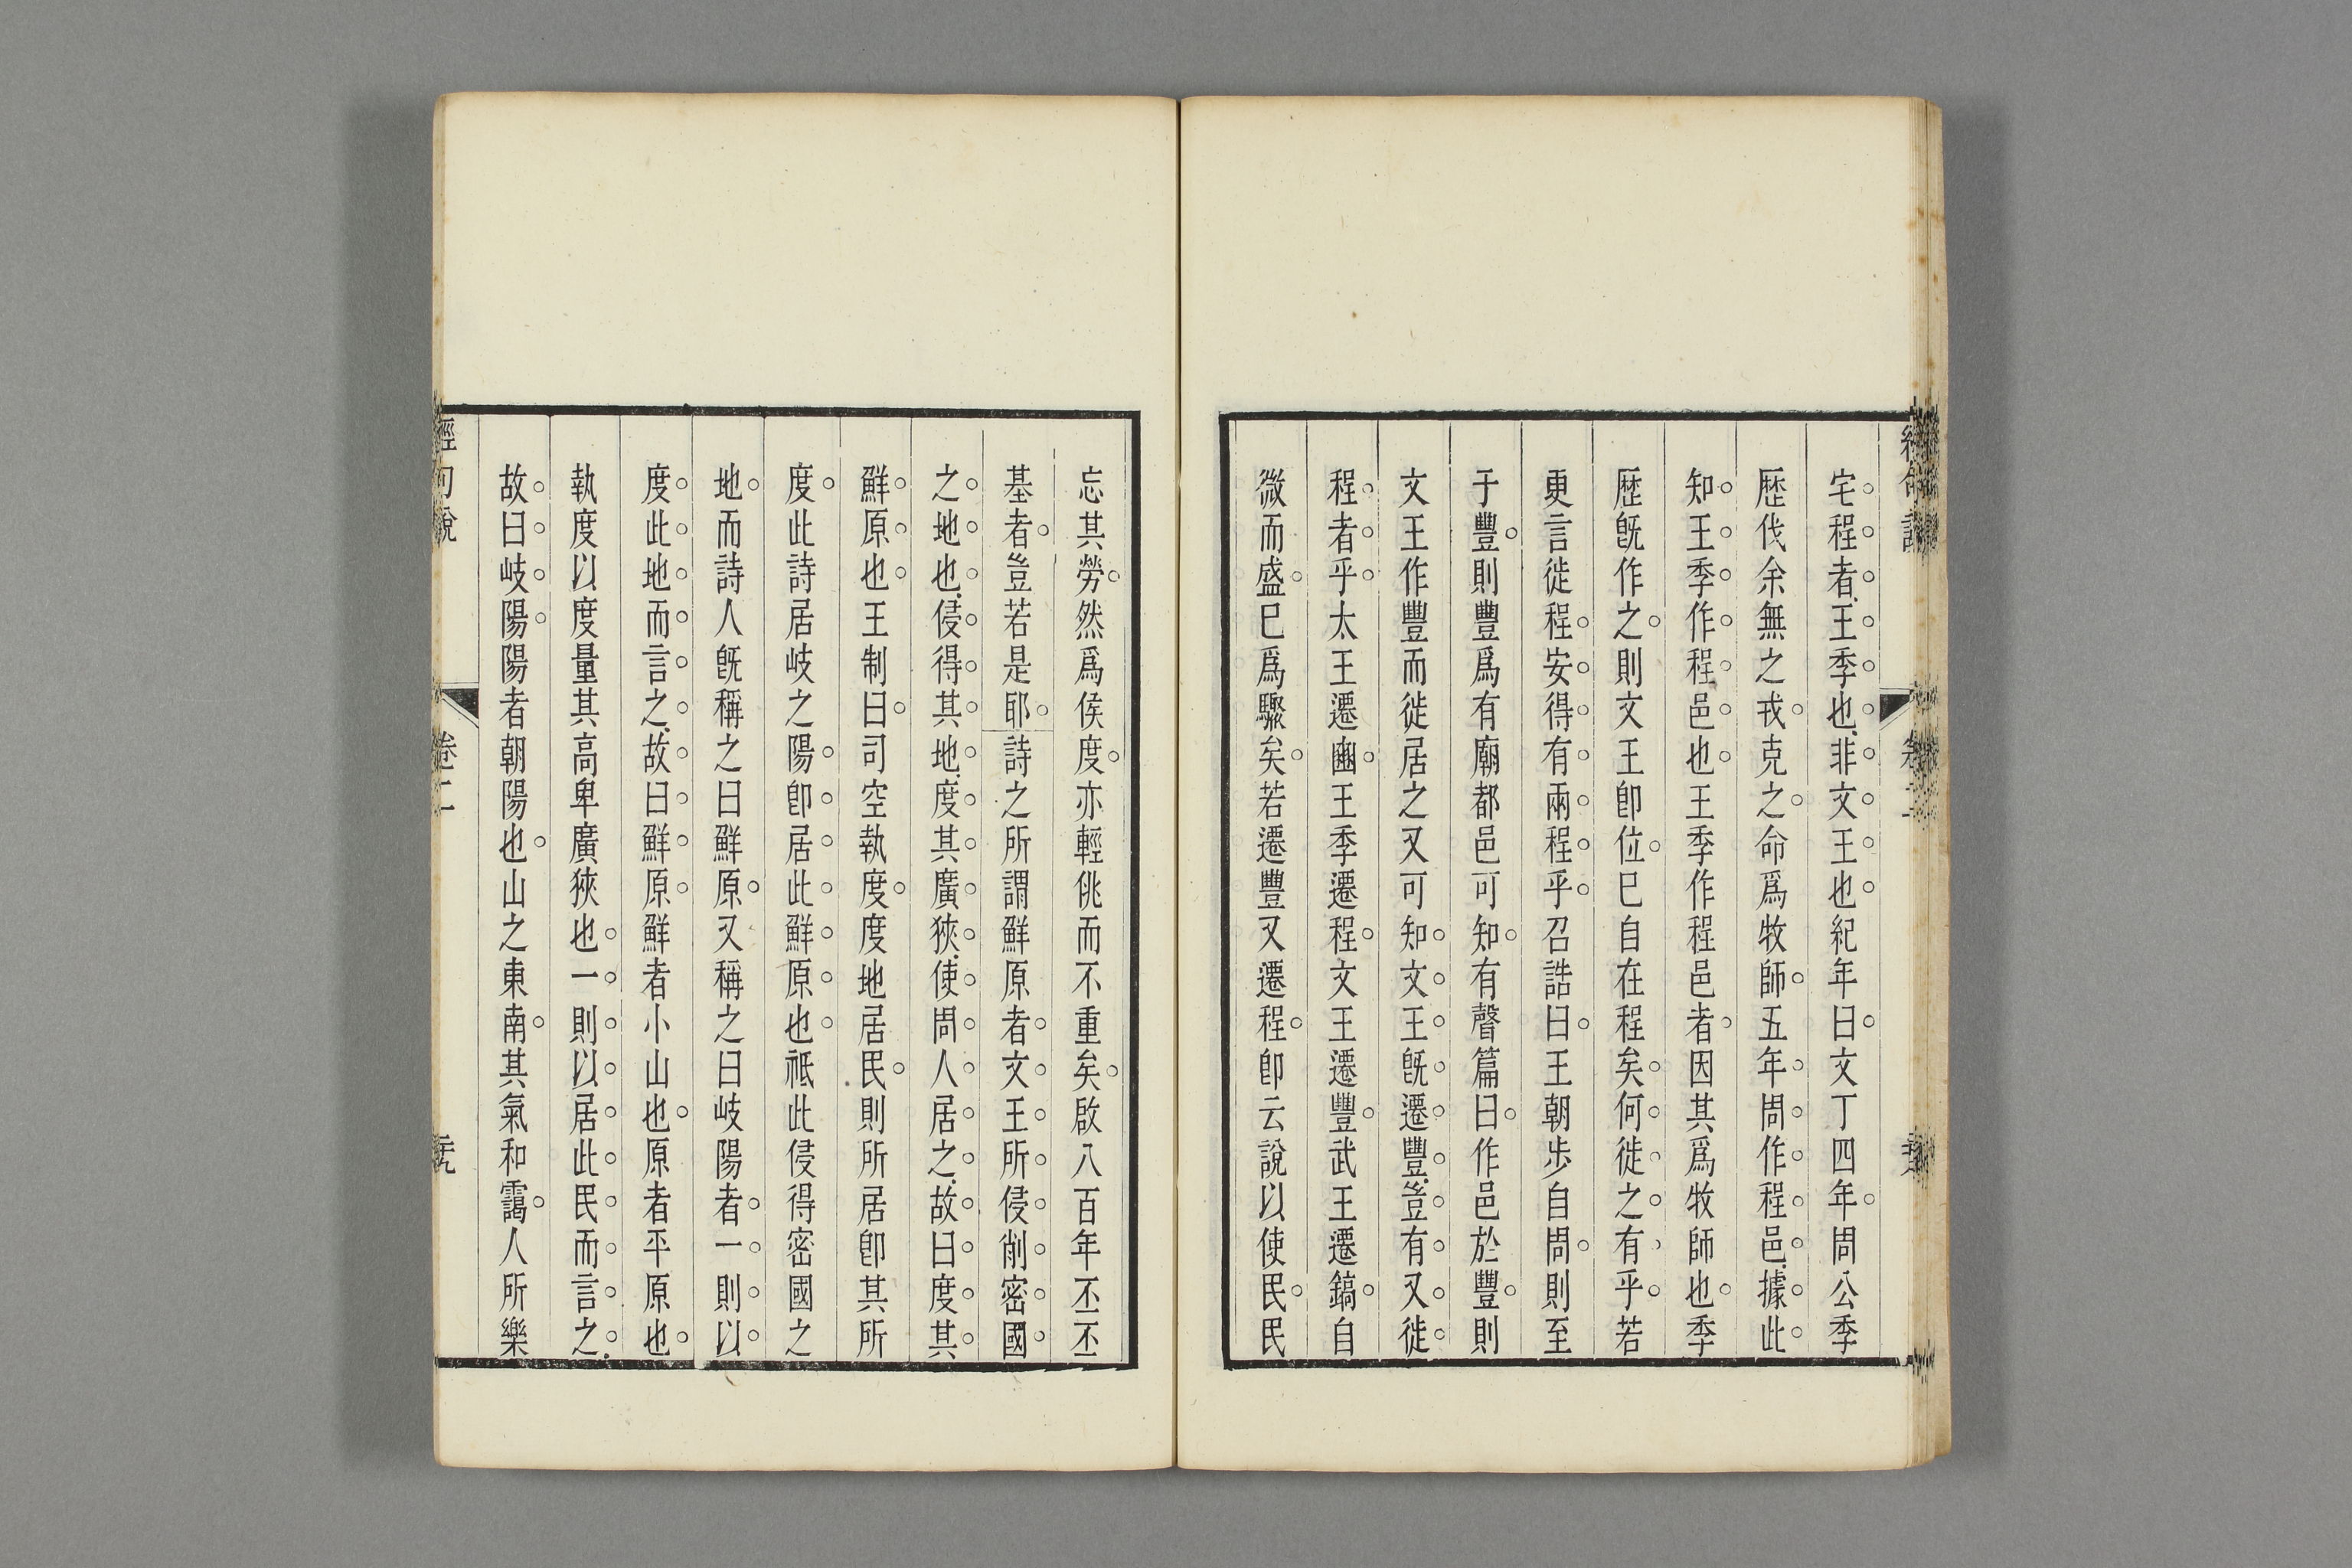 宅程者王季也非文王也紀年曰文丁四年周公季
歷伐余無之戎克之命爲牧師五年周作程邑據此
知王季作程邑也王季作程邑者因其爲牧師也季
歷旣作之則文王卽位已自在程矣何徙之有乎若
更言徙程安得有兩程乎召誥曰王朝步自周則至
于豐則豐爲有廟都邑可知有聲篇曰作邑於豐則
文王作豐而徙居之又可知文王旣遷豐豈有又徙
程者乎太王遷豳王季遷程文王遷豐武王遷鎬自
微而盛已爲驟矣若遷豐又遷程卽云說以使民民
忘其勞然爲侯度亦輕佻而不重矣啟八百年丕丕
基者豈若是耶詩之所謂鮮原者文王所侵削密國
之地也侵得其地度其廣狹使周人居之故曰度其
鮮原也王制曰司空執度度地居民則所居卽其所
度此詩居岐之陽卽居此鮮原也祗此侵得密國之
地而詩人旣稱之曰鮮原又稱之曰岐陽者一則以
度此地而言之故曰鮮原鮮者小山也原者平原也
執度以度量其高卑廣狹也一則以居此民而言之
故曰岐陽陽者朝陽也山之東南其氣和靄人所樂
經句說
卷二